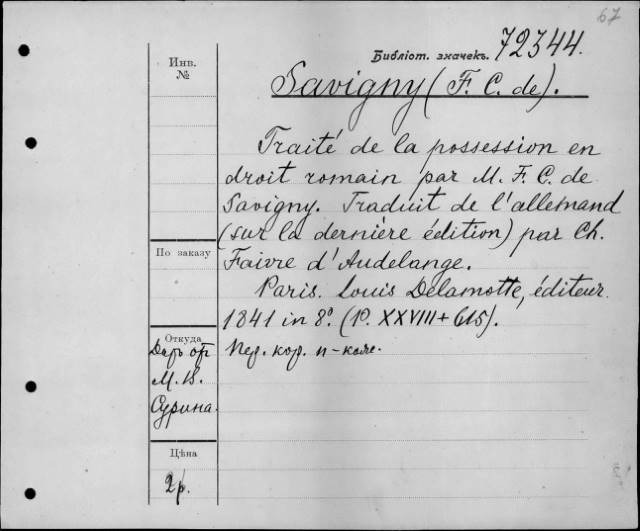 67
Библіот. значекъ. 72344.
Инв.
№
Savigny (F. C. de).
Traité de la possession en
droit romain par M. F. C. de
Savigny. Traduit de l'allemand
(sur la dernière édition) par Ch.
По заказу
Faivre d'Audelange.
Paris. Louis Delamotte, éditeur.
1841 in 8º. (P. XXVIII + 615).
Откуда
Даръ
М. В.
Сурина.
Пер. кор.
Цѣна
2р.